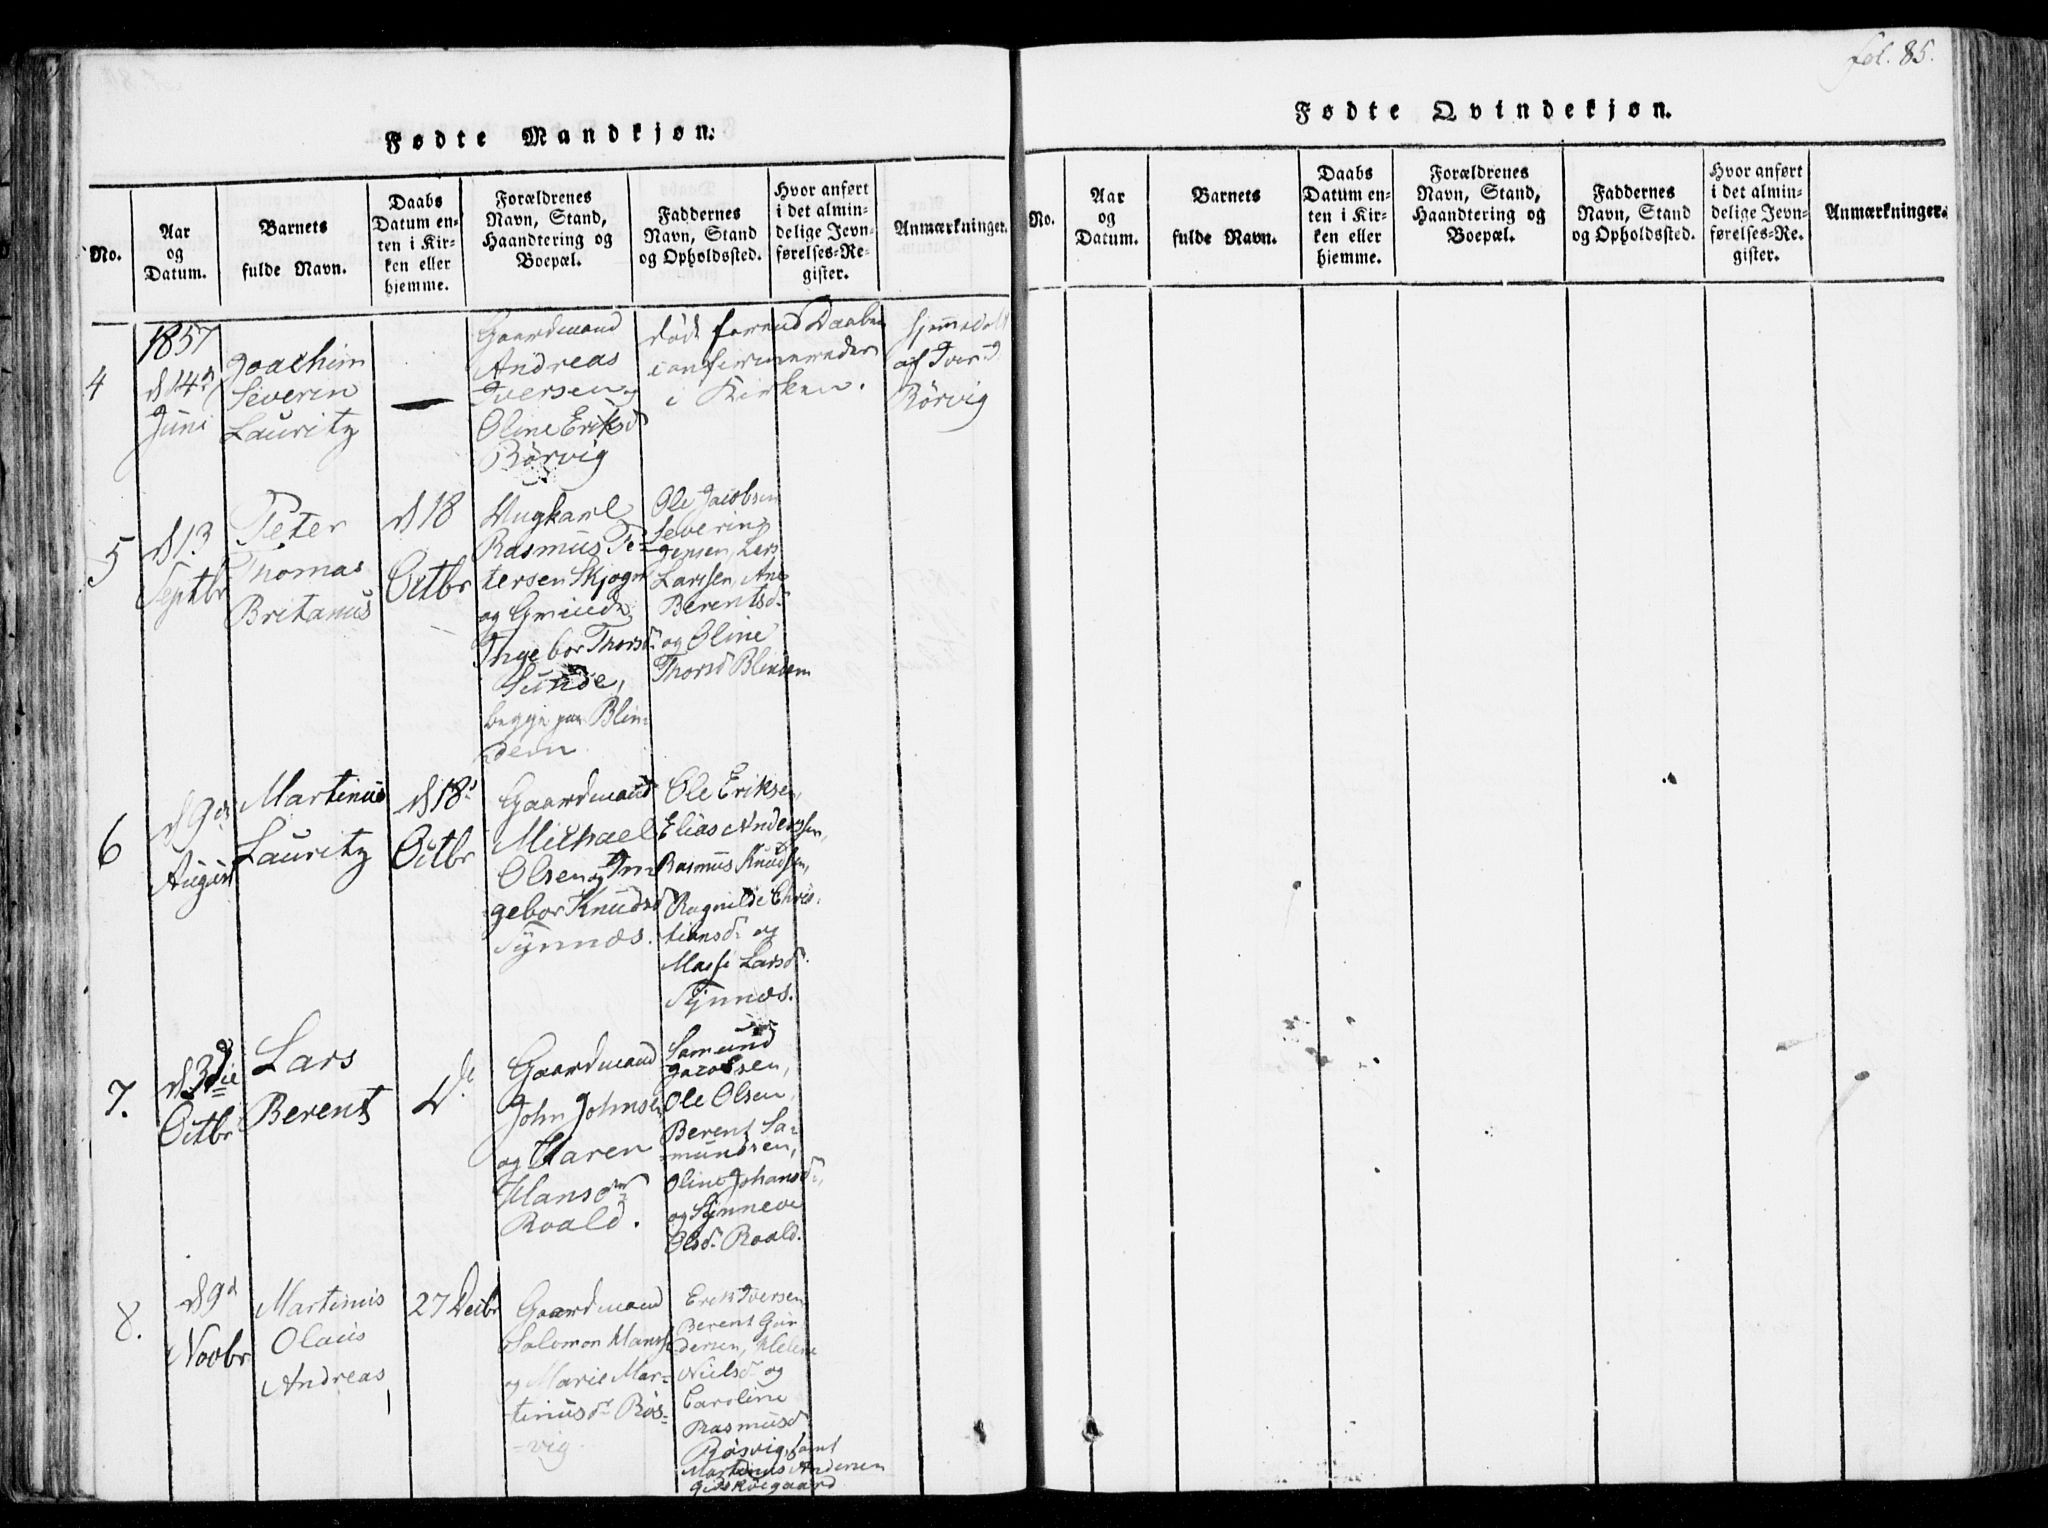 Fødte Mandkjøn.
No.
Aar
og
Datum.
Barnets
fulde Navn.
Daabs
Datum en-
ten i Kir-
ken eller
hjemme.
Forældrenes
Navn, Stand,
Haandtering og
Boepæl.
Faddernes
Navn, Stand
og Opholdssted.
Hvor anført
i det almin-
delige Jevn-
førelses-Re-
gister.
Anmærkninger.
4
1857
d 14d
Juni
Joachim
Severin
Lauritz
—
Gaardmand
Andreas
Iversen og
Oline Eriksd
Rörvig
död forend Daaben
confirmeredes
i Kirken.
hjemmedöbt
af Iver J
Rörvig
5
d 13
Septbr
Peter
Thomas
Britanus
d 18
Octbr
Ungkarl
Rasmus Pe-
tersen Skjogn
og
Ingebor Thorsd
Sunde,
begge paa Blin
dem
Ole Jacobsen
Severin
Jensen, Lars
Larssen, Ane
Berentsd
og Oline
Thorsd Blindem
6
d 9de
August
Martinus
Lauritz
d 18d
Octbr
Gaardmand
Michael
Olsen og In
gebor Knudsd
Synnæs.
Ole Eriksen,
Elias Anderssen,
Rasmus Knudsen,
Ragnilde Chris-
tiansd og
Masse Larsd
Synnæs.
7.
d 3die
Octbr
Lars
Berent
Do
Gaardmand
John Johnsen
og Karen
Hansdr
Roald.
Samund
Jacobsen,
Ole Olsen,
Berent Sa-
mundsen,
Oline Johansd,
og Synneve
Olsd Roald.
8.
d 9d
Novbr
Martinus
Olaus
Andreas
27 Decbr
Gaardmand
Salomon Hanss
og Marie Mar-
tinusd Rös-
vig.
Erik Iversen
Berent Gun
dersen, Helene
Nielsd og
Caroline
Rasmusd
Rösvig, samt
Martinus Andersen
Giskøegaard
fol. 85.
Fødte Qvindekjøn.
No.
Aar
og
Datum.
Barnets
fulde Navn.
Daabs
Datum en-
ten i Kir-
ken eller
hjemme.
Forældrenes
Navn, Stand,
Haandtering og
Boepæl.
Faddernes
Navn, Stand
og Opholdssted.
Hvor anført
i det almin-
delige Jevn-
førelses-Re-
gister.
Anmærkninger.